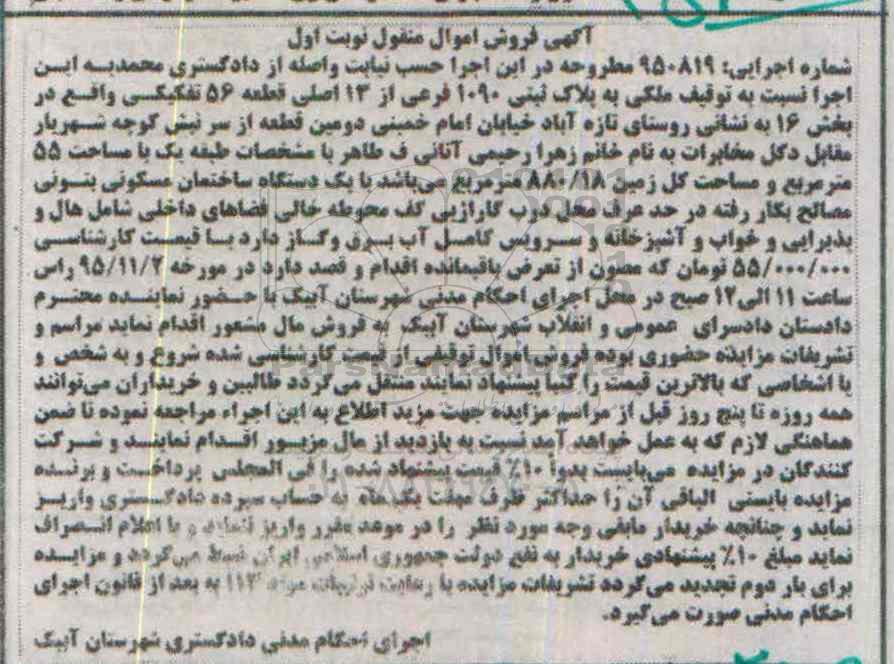 آگهی فروش اموال منقول نوبت اول
شماره اجرایی: ۹۵۰۸۱۹ مطروحه در این اجرا حسب نیابت واصله از دادگستری محمدیه این
اجرا نسبت به توقیف ملکی به پلاک ثبتی ۱۰۹۰ فرعی از ۱۳ اصلی قطعه ۵۶ تفکیکی واقع در
بخش ۱۶ به نشانی روستای تازه آباد خیابان امام خمینی دومین قطعه از سر نبش کوچه شهریار
مقابل دکل مخابرات به نام خانم زهرا رحیمی آتانی ف طاهر با مشخصات طبقه یک با مساحت ۵۵
متر مربع و مساحت کل زمین ۸۸۰/۱۸ مترمربع می‌باشد با یک دستگاه ساختمان مسکونی بتونی
مصالح بکار رفته در حد عرف محل درب گاراژیی کف محوطه خالی فضاهای داخلی شامل هال و
پذیرایی و خواب و آشپزخانه و سرویس کامل آب برق وگاز دارد با قیمت کارشناسی
۵۵/۰۰۰/۰۰۰ تومان که مصون از تعرض باقیمانده اقدام و قصد دارد در مورخه ۹۵/۱۱/۲ راس
ساعت ۱۱ الی ۱۲ صبح در محل اجرای احکام مدنی شهرستان آبیک با حضور نماینده محترم
دادستان دادسرای عمومی و انقلاب شهرستان آبیک به فروش مال مشعور اقدام نماید مراسم و
تشریفات مزایده حضوری بوده فروش اموال توقیفی از قیمت کارشناسی شده شروع و به شخص و
یا اشخاصی که بالاترین قیمت را کتبا پیشنهاد نمایند منتقل می گردد طالبین و خریداران می‌توانند
همه روزه تا پنج روز قبل از مراسم مزایده جهت مزید اطلاع به این اجراء مراجعه نموده تا ضمن
هماهنگی لازم که به عمل خواهد آمد نسبت به بازدید از مال مزبور اقدام نمایند و شرکت
کنندگان در مزایده می‌بایست بدوا ۱۰٪ قیمت پیشنهاد شده را فی المجلس پرداخت و برنده
مزایده بایستی الباقی آن را حداکثر ظرف مهلت یک ماه به حساب سپرده دادگستری واریز
نماید و چنانچه خریدار مابقی وجه مورد نظر را در موعد مقرر واریز ننماید و یا اعلام انصراف
نماید مبلغ ۱۰٪ پیشنهادی خریدار به نفع دولت جمهوری اسلامی ایران ضبط می گردد و مزایده
برای بار دوم تجدید می گردد تشریفات مزایده با رعایت ترتیبات مواد ۱۱۳ به بعد از قانون اجرای
احکام مدنی صورت می گیرد.
اجرای احکام مدنی دادگستری شهرستان آبیک
ParsNamadData